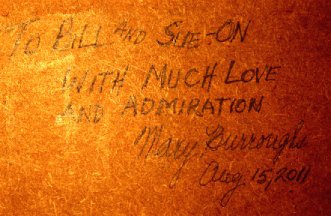 TO BILL AND SUE-ON
WITH MUCH LOVE
AND ADMIRATION
Mary Burroughs
Aug 15, 2011